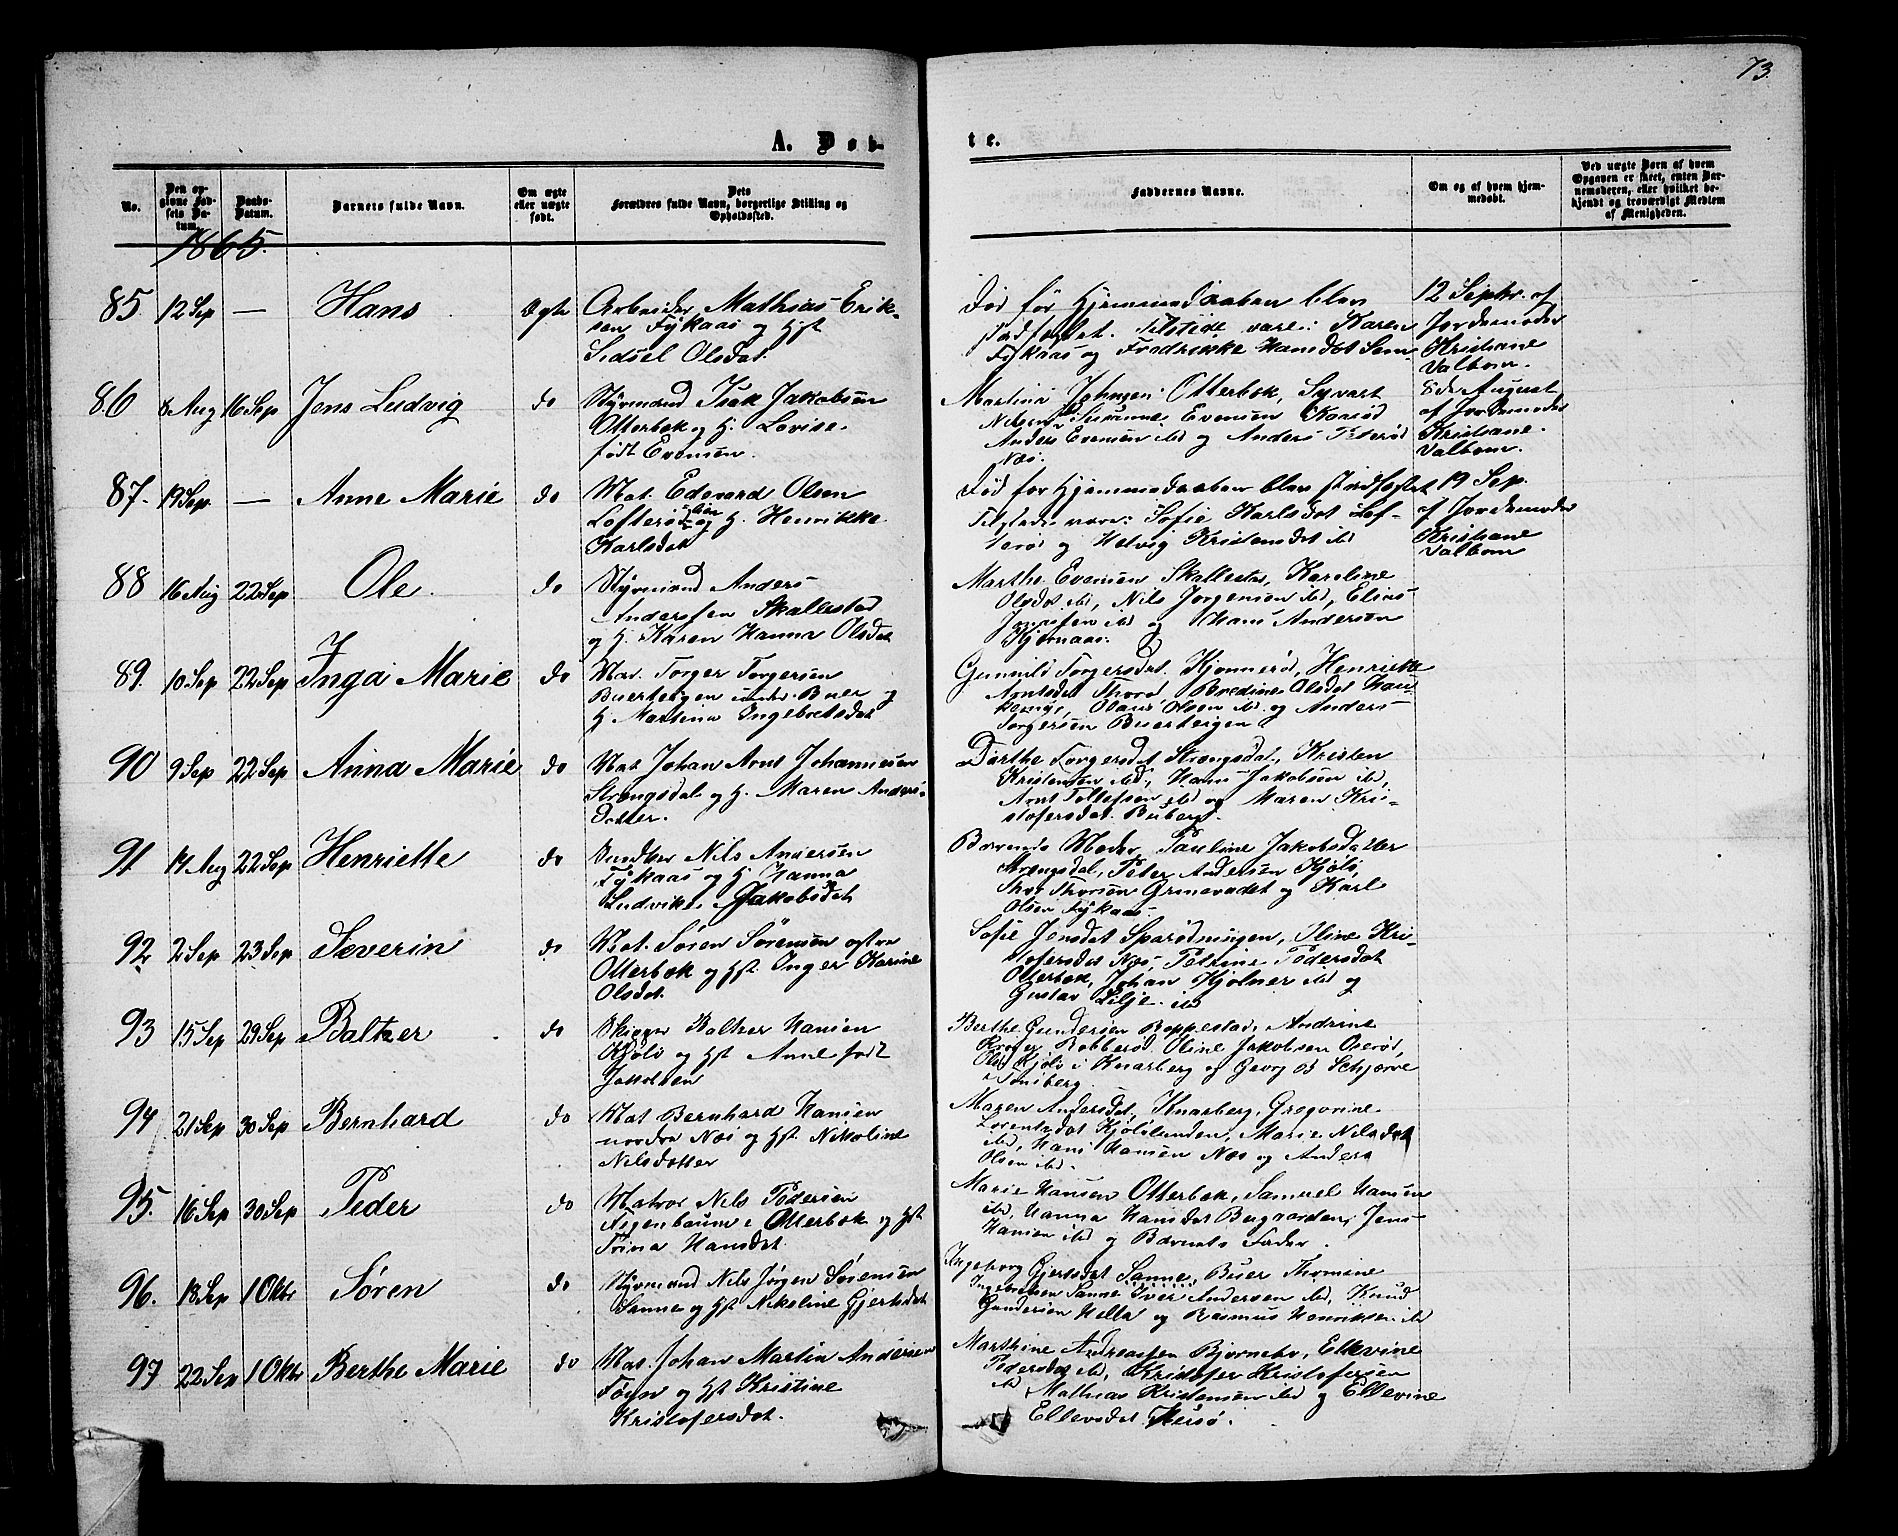 73.
A. Døb-
te.
No.
Den opgivne Fødsels Datum.
Daabs-Datum.
Barnets fulde Navn.
Om ægte eller uægte født.
Dets Forældres fulde Navn, borgerlige Stilling og Opholdssted.
Faddernes Navne.
Om og af hvem hjemmedøbt.
Ved uægte Barn af hvem Opgaven er skeet, enten Barnemoderen, eller hvilket bekjendt og troværdigt Medlem af Menigheden.
1865.
85. 12 Sep — Hans Ægte Arbeider Mathias Erik-
sen Fykaas og Hst
Sidsel Olsdat.
Død før Hjemmedaaben blev
stadfæstet. Tilstede vare: Karen
Fykaas og Fredrikke Hansdat Sem
12 Septbr. af
Jordemoder
Kristiane
Valbom.
86 8 Aug 16 Sep Jens Ludvig do Styrmand Isak Jakobsen
Otterbek og H. Lovise
født Evensen.
Martina Johnsen Otterbek, Syvert
Nilsen Susanne Evensen Kaarød
Anders Evensen ibd og Anders Peterød
Næs.
8de August
af Jordemoder
Kristiane
Valbom.
87. 19 Sep. — Anne Marie do Mat. Edevard Olsen
Lofterød og H. Henrikke
Karlsdat
Død før Hjemmedaaben blev stadfæstet
Tilstede vare: Sofie Karlsdat Lof-
terød og Helvig Kristensdat ibd
19 Sep.
af Jordemoder
Kristiane
Valbom
88 16 Aug 22 Sep Ole. do Styrmand Anders
Andersen Skallestad
og H. Karen Hanna Olsdat
Marthe Evensen Skallestad, Karoline
Olsdat ibd, Nils Jørgensen ibd, Elias
ibd og Hans Andersen
Kjørnaas.
89. 10 Sep 22 Sep Inga Marie do Mat. Torger Torgersen
Buerbergen Buer og
H. Martina Ingebretsdat
Gunnild Torgersdat. Kjønnerød, Henriette
Arntsdat Bredine Olsdat
Olaus Olsen ibd og Anders
Torgersen Buerbergen
90 9 Sep 22 Sep Anna Marie do Mat Johan Arnt Johannesen
Strengsdal og H. Maren Anders-
datter.
Dorthe Torgersdat Strengsdal, Kristen
Kristensen ibd, Hans Jakobsen ibd,
Arnt Tollefsen ibd og Maren Kri-
stofersdat. Buberg.
91 14 Aug 22 Sep Henriette do Snedker Nils Andersen
Fykaas og H. Hanna
Ludvikke Jakobsdat
Barnets Moder Pauline Jakobsdatter
Strengsdal, Peter Andersen Kjøle,
Thor Thorsen Grimevadet og Karl
Olsen Fykaas.
92 2 Sep 23 Sep Severin do Mat. Søren Sørensen østre
Otterbek og Hst. Inger Karine
Olsdat.
Sofie Jensdat Sparødningen, Oline Kri-
stofersdat Næs, Petrine Pedersdat
Otterbek, Johan Kjølner ibd og
Gustav Lilje ibd
93 15 Sep 29 Sep Baltzer do Skipper Baltzer Hansen
Kjøle og Hst Anne født
Jakobsen
Berthe Gundersen Roppestad, Andrine
Robberød. Oline Jakobsen Oserød,
Ole Kjøle i Knarberg og Georg Schjerve
Tønsberg.
94 21 Sep 30 Sep Bernhard do Mat Bernhard Hansen
nordre Næs og Hst. Nikoline
Nilsdatter
Maren Andersdat, Knarberg, Gregorine
Lorentsdat Kjølelunden, Marie Nilsdat
ibd, Hans Hansen Næs og Anders
Olsen ibd.
95. 16 Sep 30 Sep Peder do Matros Nils Pedersen
Feigenbaum i Otterbek og Hst
Trina Hansdat.
Marie Hansen Otterbek, Samuel Hansen
ibd, Hanna Hansdat Bergaarden, Jens
Hansen ibd og Barnets Fader.
96. 18 Sep 1 Oktr Søren do Styrmand Nils Jørgen Sørensen
Sanne og Hst Nikoline Gjertsdat
Ingeborg Gjertsdat Sanne, Buer Thomine
Ingebretsen Sanne Iver Andersen ibd, Knud
Gundersen Hella og Rasmus Henriksen ibd
97 22 Sep 1 Oktr Berthe Marie do Mat. Johan Martin Andersen
og Hst Kristine
Kristofersdat.
Marthine Andreassen Bjørnebo, Ellevine
Pedersdat ibd, Kristofer Kristofersen
ibd Mathias Kristensen ibd og Ellevine
Ellevsdat.